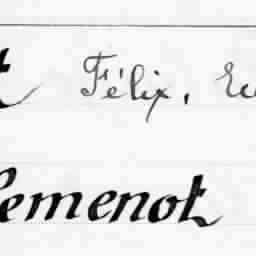 t Félix, Eu
emenot